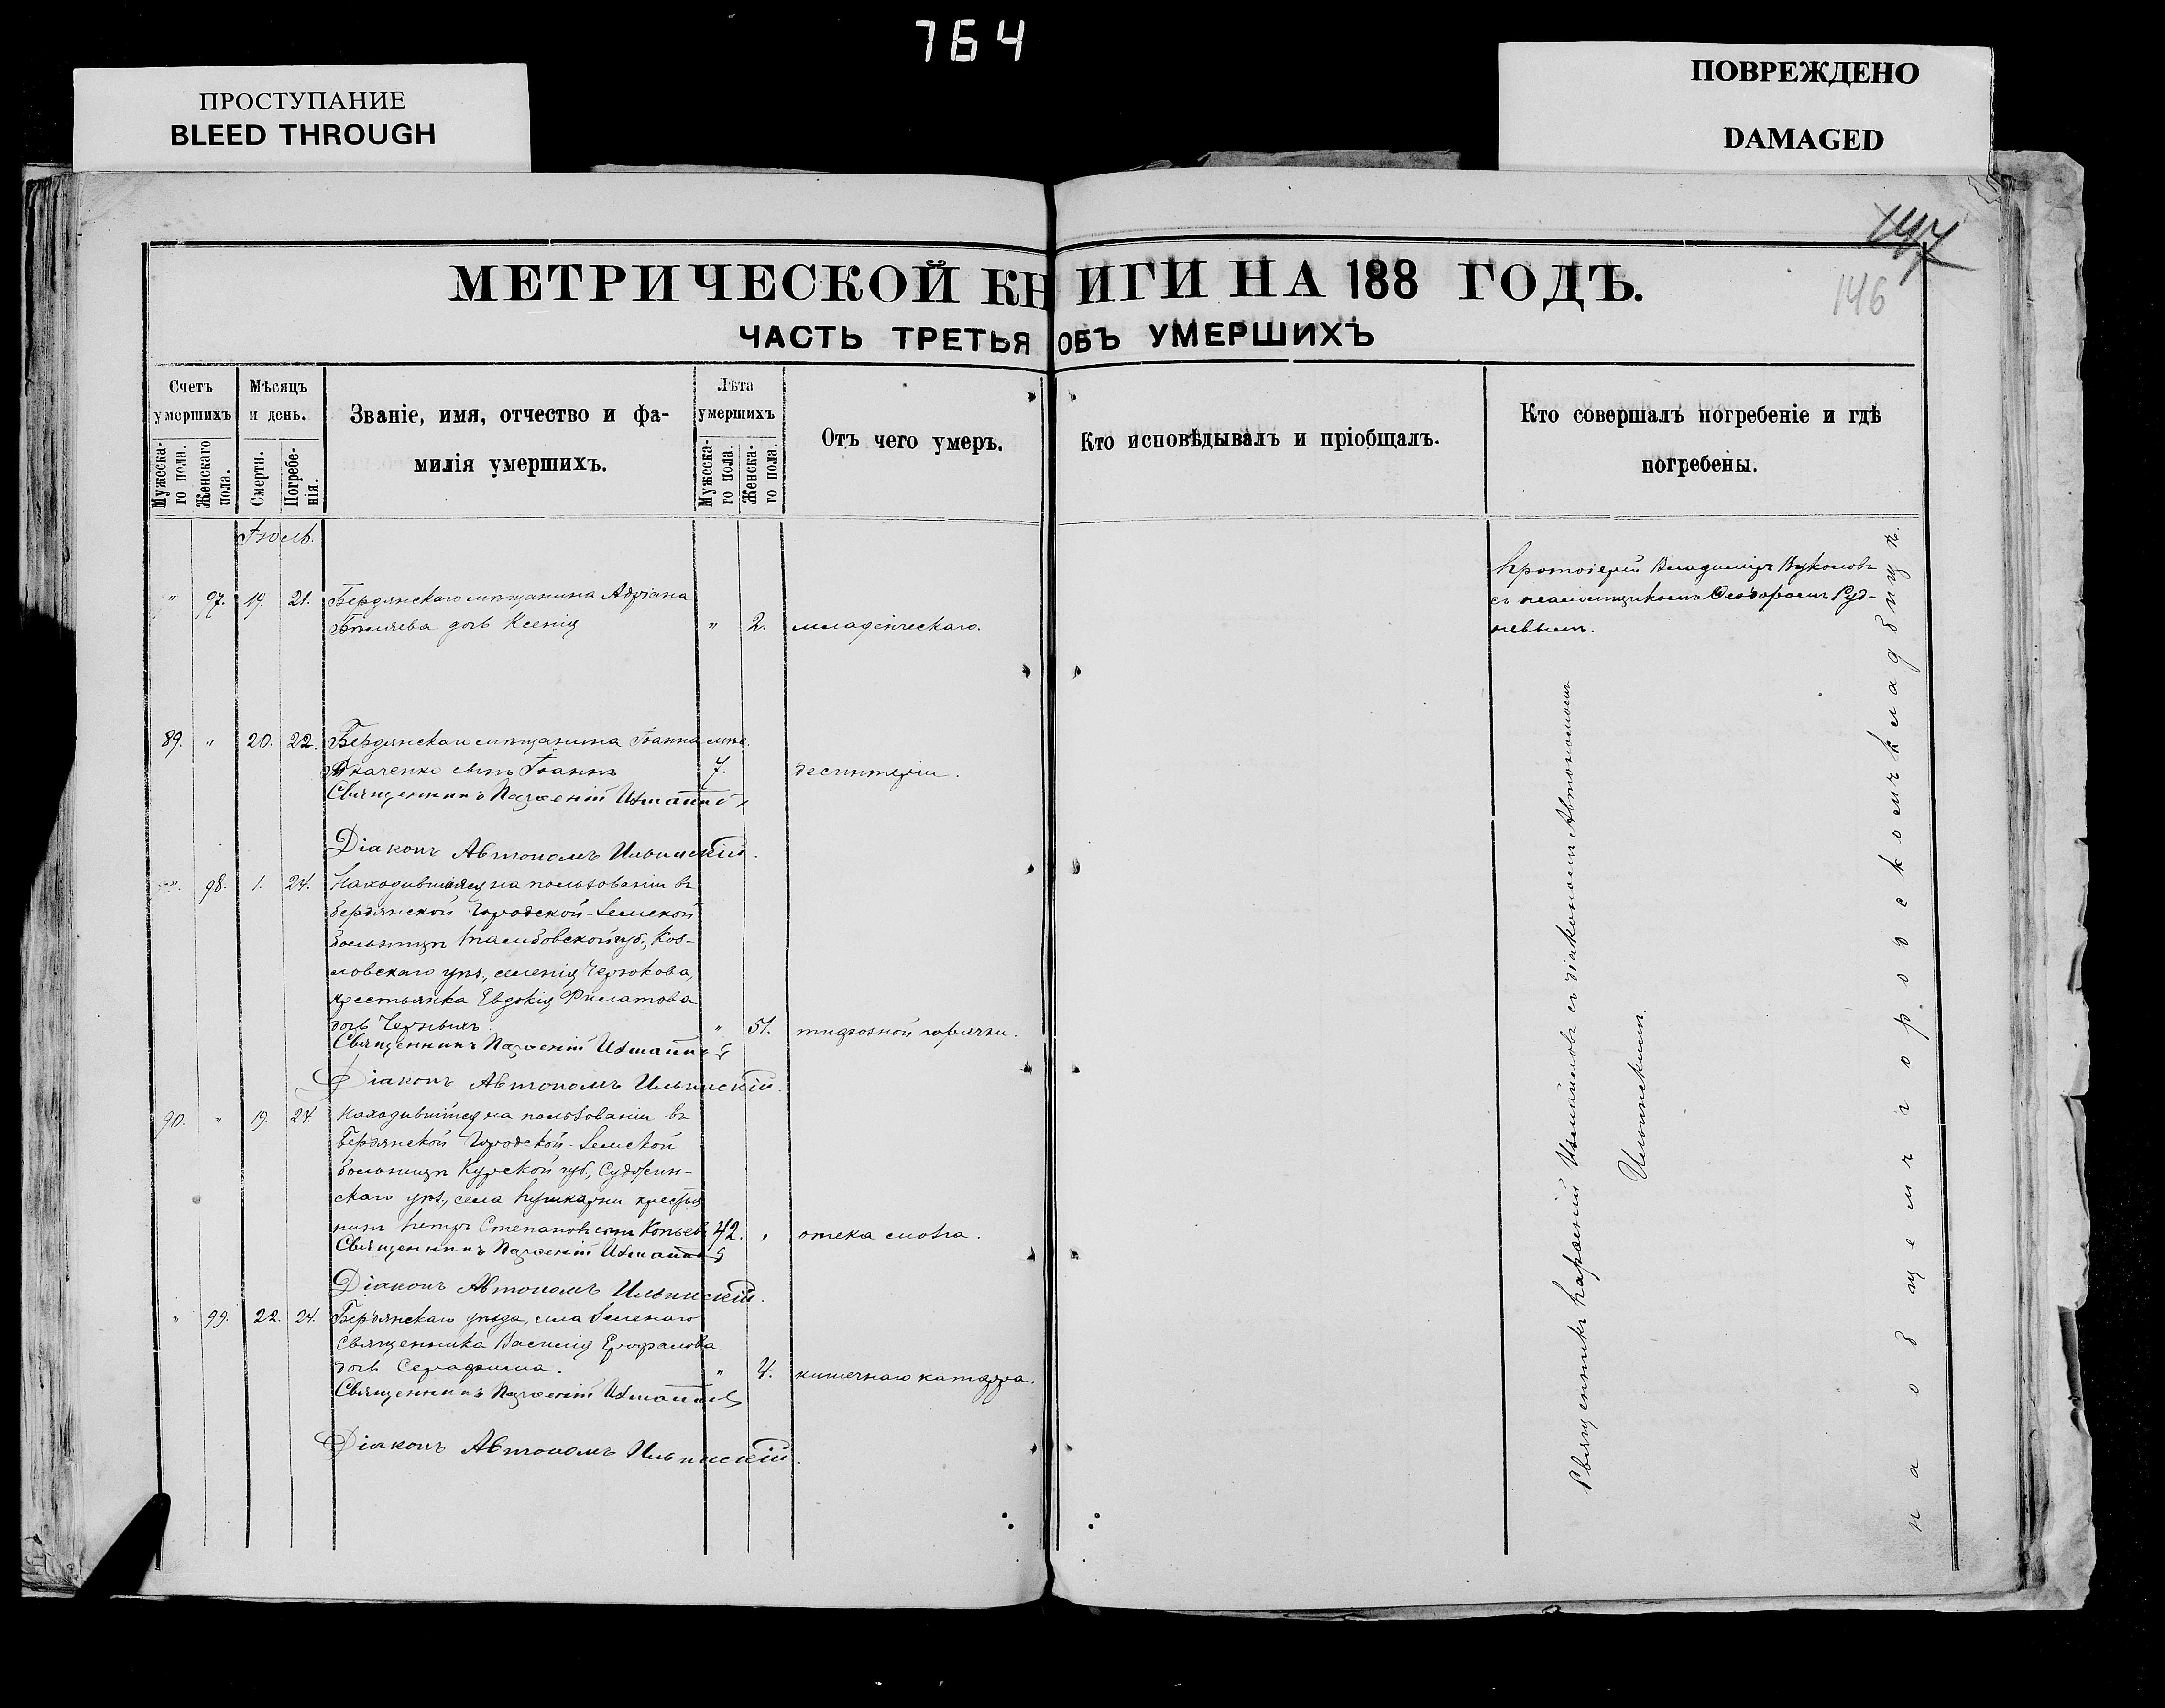 764
ПРОСТУПАНИЕ
BLEED THROUGH
ПОВРЕЖДЕНО
DAMAGED
146
МЕТРИЧЕСКОЙ КНИГИ НА 188 ГОДЪ.
ЧАСТЬ ТРЕТЬЯ ОБЪ УМЕРШИХЪ
Счетъ умершихъ
Мужеска-го пола.
Женскаго пола.
Мѣсяцъ и день.
Смерти.
Погребе-нія.
Званіе, имя, отчество и фа-
милія умершихъ.
Лѣта умершихъ
Мужеска-го пола.
Женска-го пола.
Отъ чего умеръ.
Кто исповѣдывалъ и пріобщалъ.
Кто совершалъ погребеніе и гдѣ
погребены.
Іюль.
" 97. 19. 21. Бердянскаго мѣщанина Адріана
Бѣляева дочь Ксенія " 2. младенческаго.
Протоіерей Владиміръ Вуколовъ
съ псаломщикомъ Ѳеодоромъ Руд-
невымъ.
89. " 20. 22. Бердянскаго мѣщанина Іоанна мѣс.
Ткаченко сынъ Іоаннъ 7. десинтеріи.
Священникъ Парѳеній Измаиловъ
Діаконъ Автономъ Ильинскій.
". 98. 1. 24. Находившаяся на пользованіи въ
бердянской Городской-Земской
больницѣ Тамбовской губ., Коз-
ловскаго уѣз., селенія
крестьянка Евдокія Филатова
дочь Черныхъ. " 51. тифозной горячки.
Священникъ Парѳеній Измаиловъ
Діаконъ Автономъ Ильинскій.
90. " 19. 24. Находившійся на пользованіи въ
бердянской Городской-Земской
больницѣ Курской губ., Суджин-
скаго уѣз., села Пушкарни крестья
нинъ Петръ Степановъ сынъ 42. " отека мозга.
Священникъ Парѳеній Измаиловъ
Діаконъ Автономъ Ильинскій.
" 99. 22. 24. Бердянскаго уѣзда, села Зеленаго
Священника Василія
дочь Серафима. " 4. кишечнаго катарра.
Священникъ Парѳеній Измаиловъ
Діаконъ Автономъ Ильинскій.
Священникъ Парѳеній Измаиловъ съ діакономъ Автономомъ
Ильинскимъ.
на общемъ городскомъ кладбищѣ.